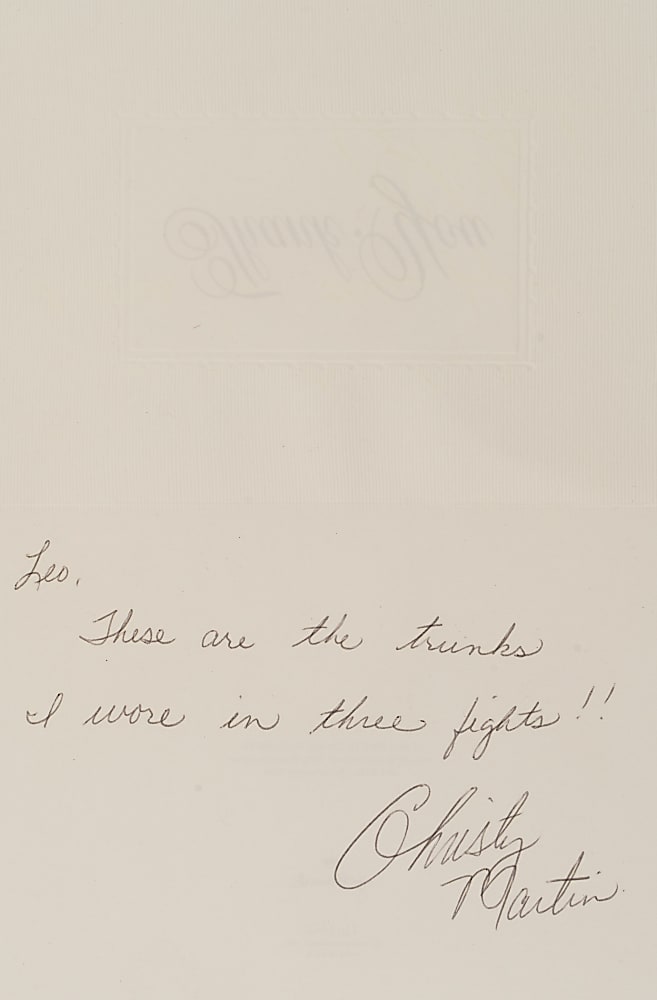 Thank You
Leo,
These are the trunks
I wore in three fights!!
Christy
Martin